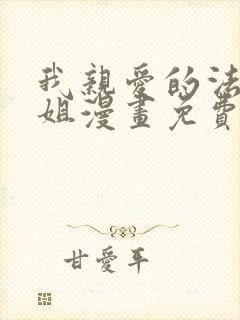 我親愛的法
姐漫畫免費
甘愛平